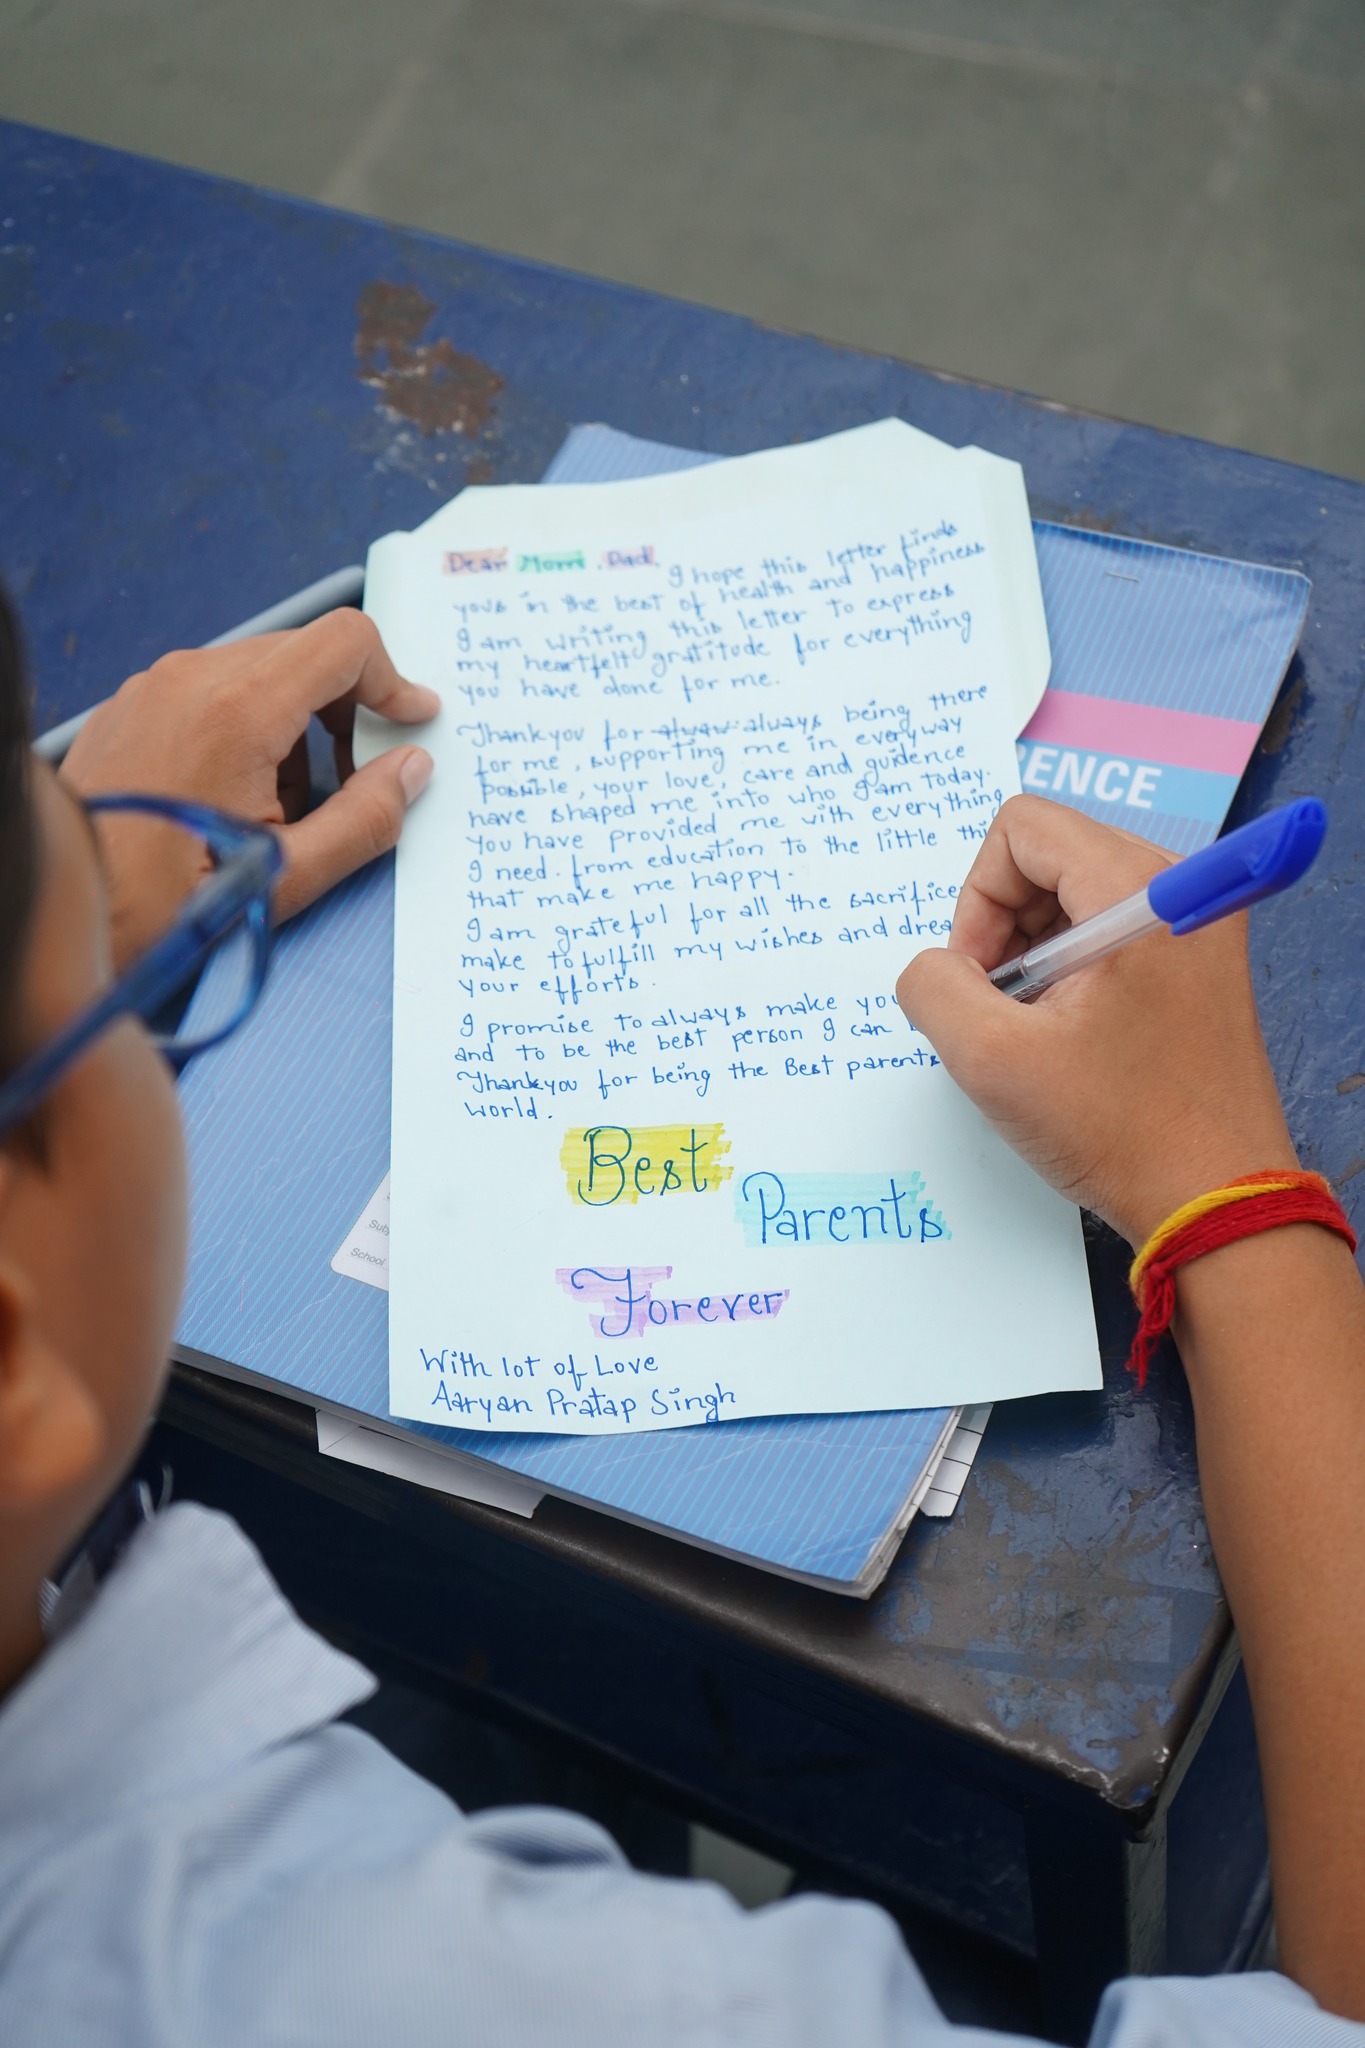 Dear Mom, Dad, I hope this letter finds
yous in the best of health and happiness
I am writing this letter to express
my heartfelt gratitude for everything
you have done for me.
Thankyou for always being there
for me, supporting me in everyway
possible, your love, care and guidence
have shaped me into who I am today.
You have provided me with everything
I need. from education to the little thi
that make me happy.
I am grateful for all the sacrifice
make to fulfill my wishes and drea
your efforts.
I promise to always make you
and to be the best person I can
Thankyou for being the Best parents
world.
Best
Parents
Forever
With lot of Love
Aaryan Pratap Singh
ENCE
Sub
School